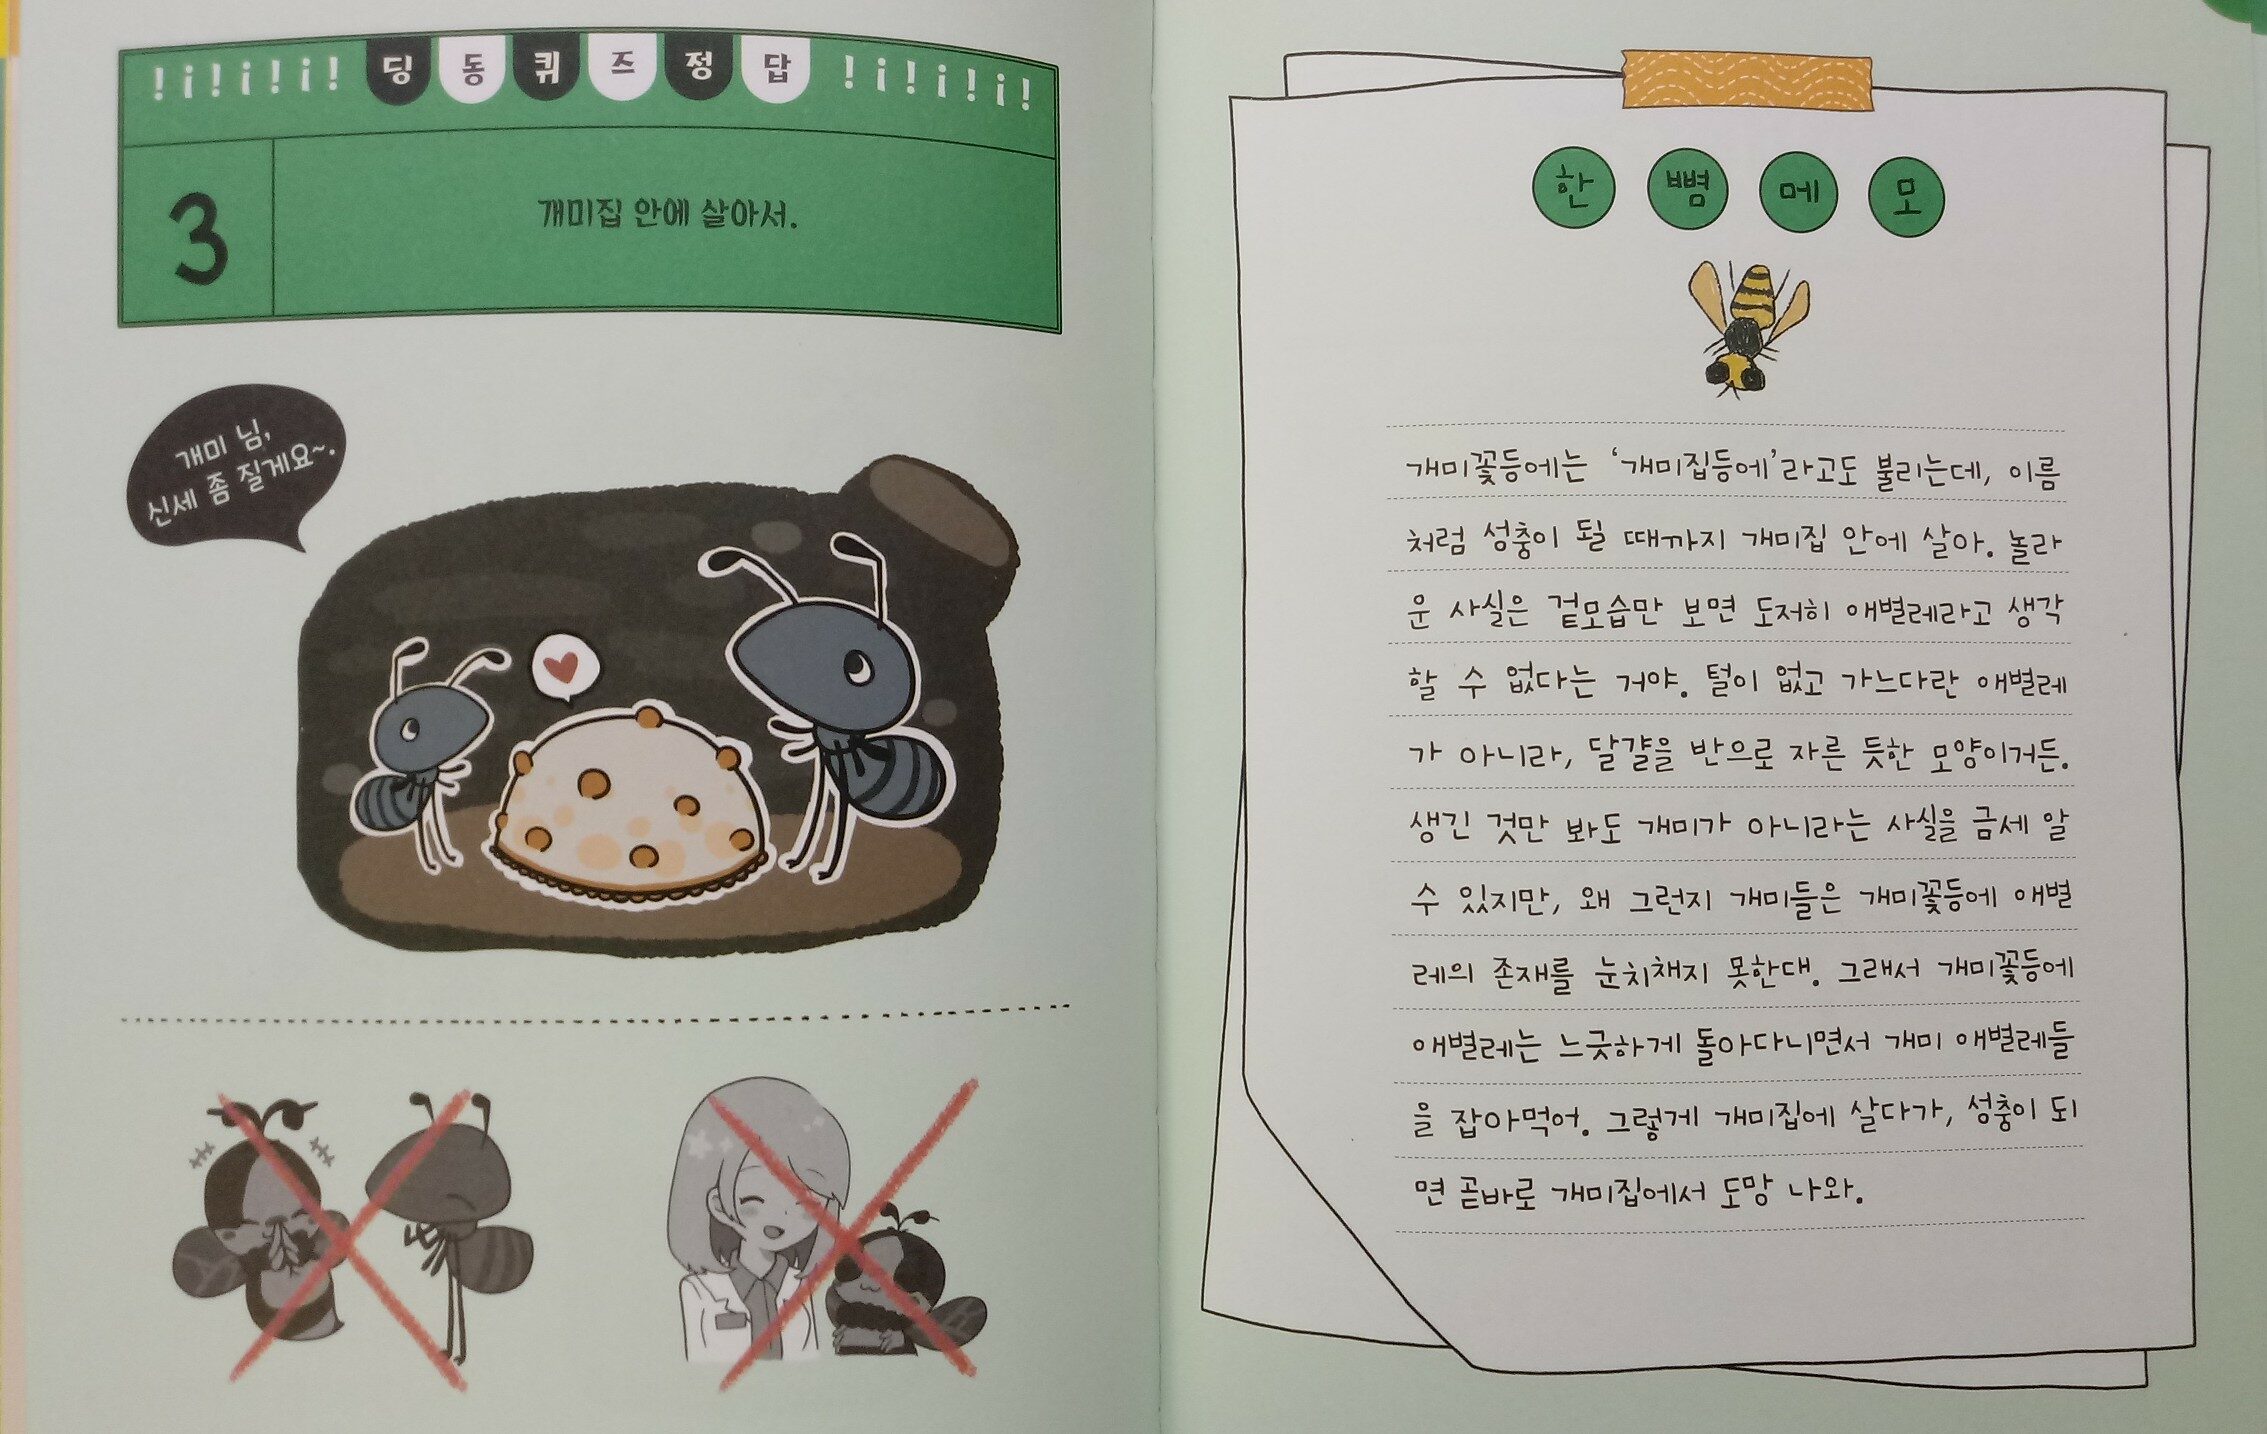 !¡!¡!¡! 딩동퀴즈정답 !¡!¡!¡!
3
개미집 안에 살아서.
개미 님,
신세 좀 질게요~.
한뼘메모
개미꽃등에는 ‘개미집등에’라고도 불리는데, 이름
처럼 성충이 될 때까지 개미집 안에 살아. 놀라
운 사실은 겉모습만 보면 도저히 애벌레라고 생각
할 수 없다는 거야. 털이 없고 가느다란 애벌레
가 아니라, 달걀을 반으로 자른 듯한 모양이거든.
생긴 것만 봐도 개미가 아니라는 사실을 금세 알
수 있지만, 왜 그런지 개미들은 개미꽃등에 애벌
레의 존재를 눈치채지 못한대. 그래서 개미꽃등에
애벌레는 느긋하게 돌아다니면서 개미 애벌레들
을 잡아먹어. 그렇게 개미집에 살다가, 성충이 되
면 곧바로 개미집에서 도망 나와.